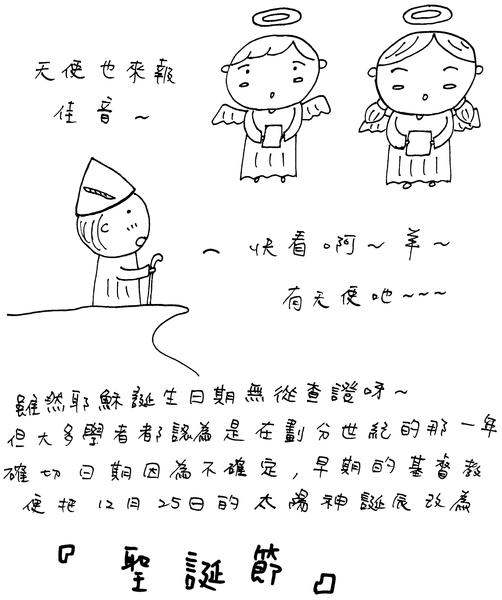 天使也來報
佳音~
快看啊~羊~
有天使吔~~~
雖然耶穌誕生日期無從查證呀~
但大多學者都認為是在劃分世紀的那一年
確切日期因為不確定,早期的基督教
便把12月25日的太陽神誕辰改為
『聖誕節』